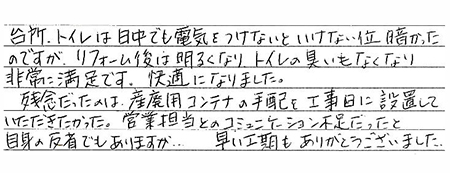 台所、トイレは日中でも電気をつけないといけない位暗かった
のですが、リフォーム後は明るくなり、トイレの臭いもなくなり
非常に満足です。快適になりました。
残念だったのは、産廃用コンテナの手配を工事日に設置して
いただきたかった。営業担当とのコミュニケーション不足だったと
自身の反省でもありますが… 早い工期もありがとうございました。